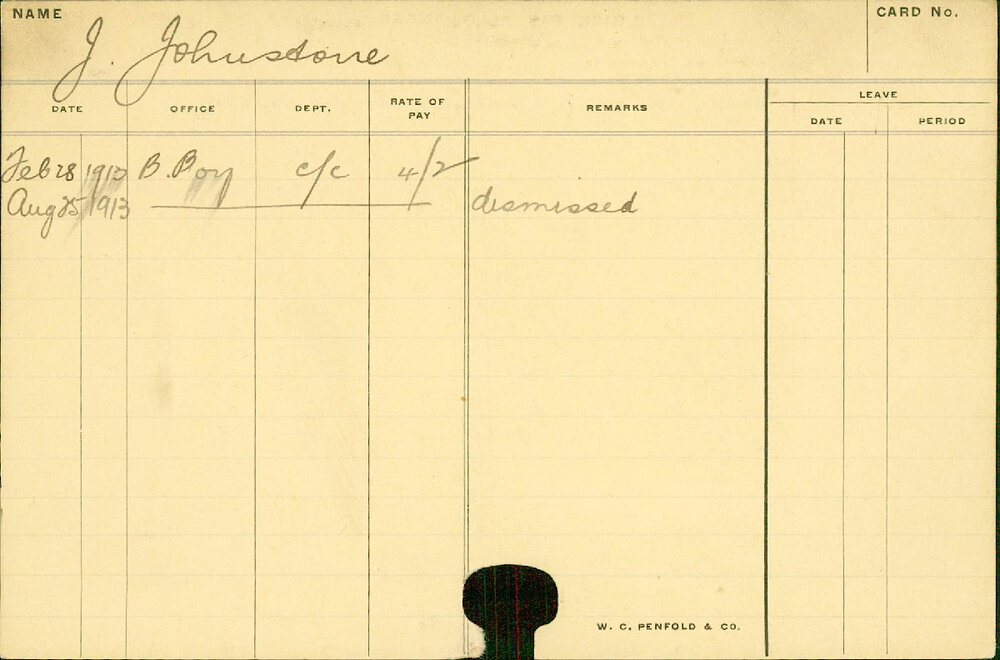 NAME
J. Johnstone
CARD No.
DATE OFFICE DEPT. RATE OF PAY REMARKS LEAVE
DATE PERIOD
Feb 28 1913 B. Boy c/c 4/2
Aug 25 1913 dismissed
W. C. PENFOLD & CO.